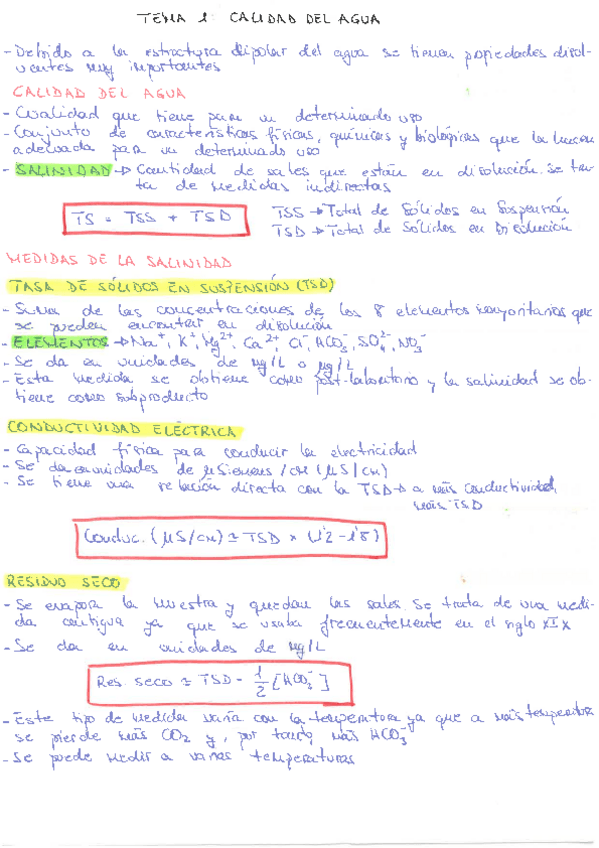 TEMA 1: CALIDAD DEL AGUA
- Debido a la estructura dipolar del agua se tienen propiedades disol-
ventes muy importantes
CALIDAD DEL AGUA
- Cualidad que tiene para un determinado uso
- Conjunto de características físicas, químicas y biológicas que la hacen
adecuada para un determinado uso
- SALINIDAD → Cantidad de sales que están en disolución. Se tra-
ta de medidas indirectas
TS = TSS + TSD
TSS → Total de Sólidos en Suspensión
TSD → Total de Sólidos en Disolución
MEDIDAS DE LA SALINIDAD
TASA DE SÓLIDOS EN SUSPENSIÓN (TSD)
- Suma de las concentraciones de los 8 elementos mayoritarios que
se pueden encontrar en disolución
- ELEMENTOS → Na⁺, K⁺, Mg²⁺, Ca²⁺, Cl⁻, HCO₃⁻, SO₄²⁻, NO₃⁻
- Se da en unidades de mg/L o µg/L
- Esta medida se obtiene como post-laboratorio y la salinidad se ob-
tiene como subproducto
CONDUCTIVIDAD ELÉCTRICA
- Capacidad física para conducir la electricidad
- Se da en unidades de µSiemens/cm (µS/cm)
- Se tiene una relación directa con la TSD → a más conductividad,
más TSD
Conduc. (µS/cm) ≃ TSD × (1'2 - 1'8)
RESIDUO SECO
- Se evapora la muestra y quedan las sales. Se trata de una medi-
da antigua ya que se usaba frecuentemente en el siglo XIX
- Se da en unidades de mg/L
Res seco ≃ TSD - 1/2 [HCO₃⁻]
- Este tipo de medida varía con la temperatura ya que a más temperatura
se pierde más CO₂ y, por tanto, más HCO₃⁻
- Se puede medir a varias temperaturas